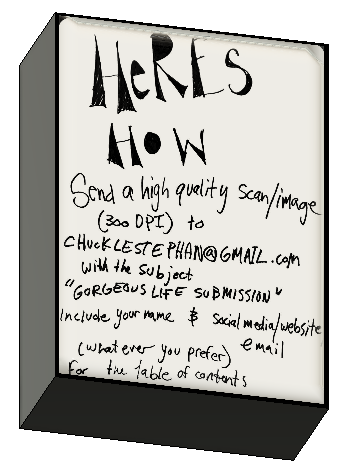 HeRES
HOW
Send a high quality scan/image
(300 DPI) to
CHUCKLESTEPHAN@GMAIL.com
with the subject
"GORGEOUS LIFE SUBMISSION"
Include your name & social media/website
email
(whatever you prefer)
For the table of contents